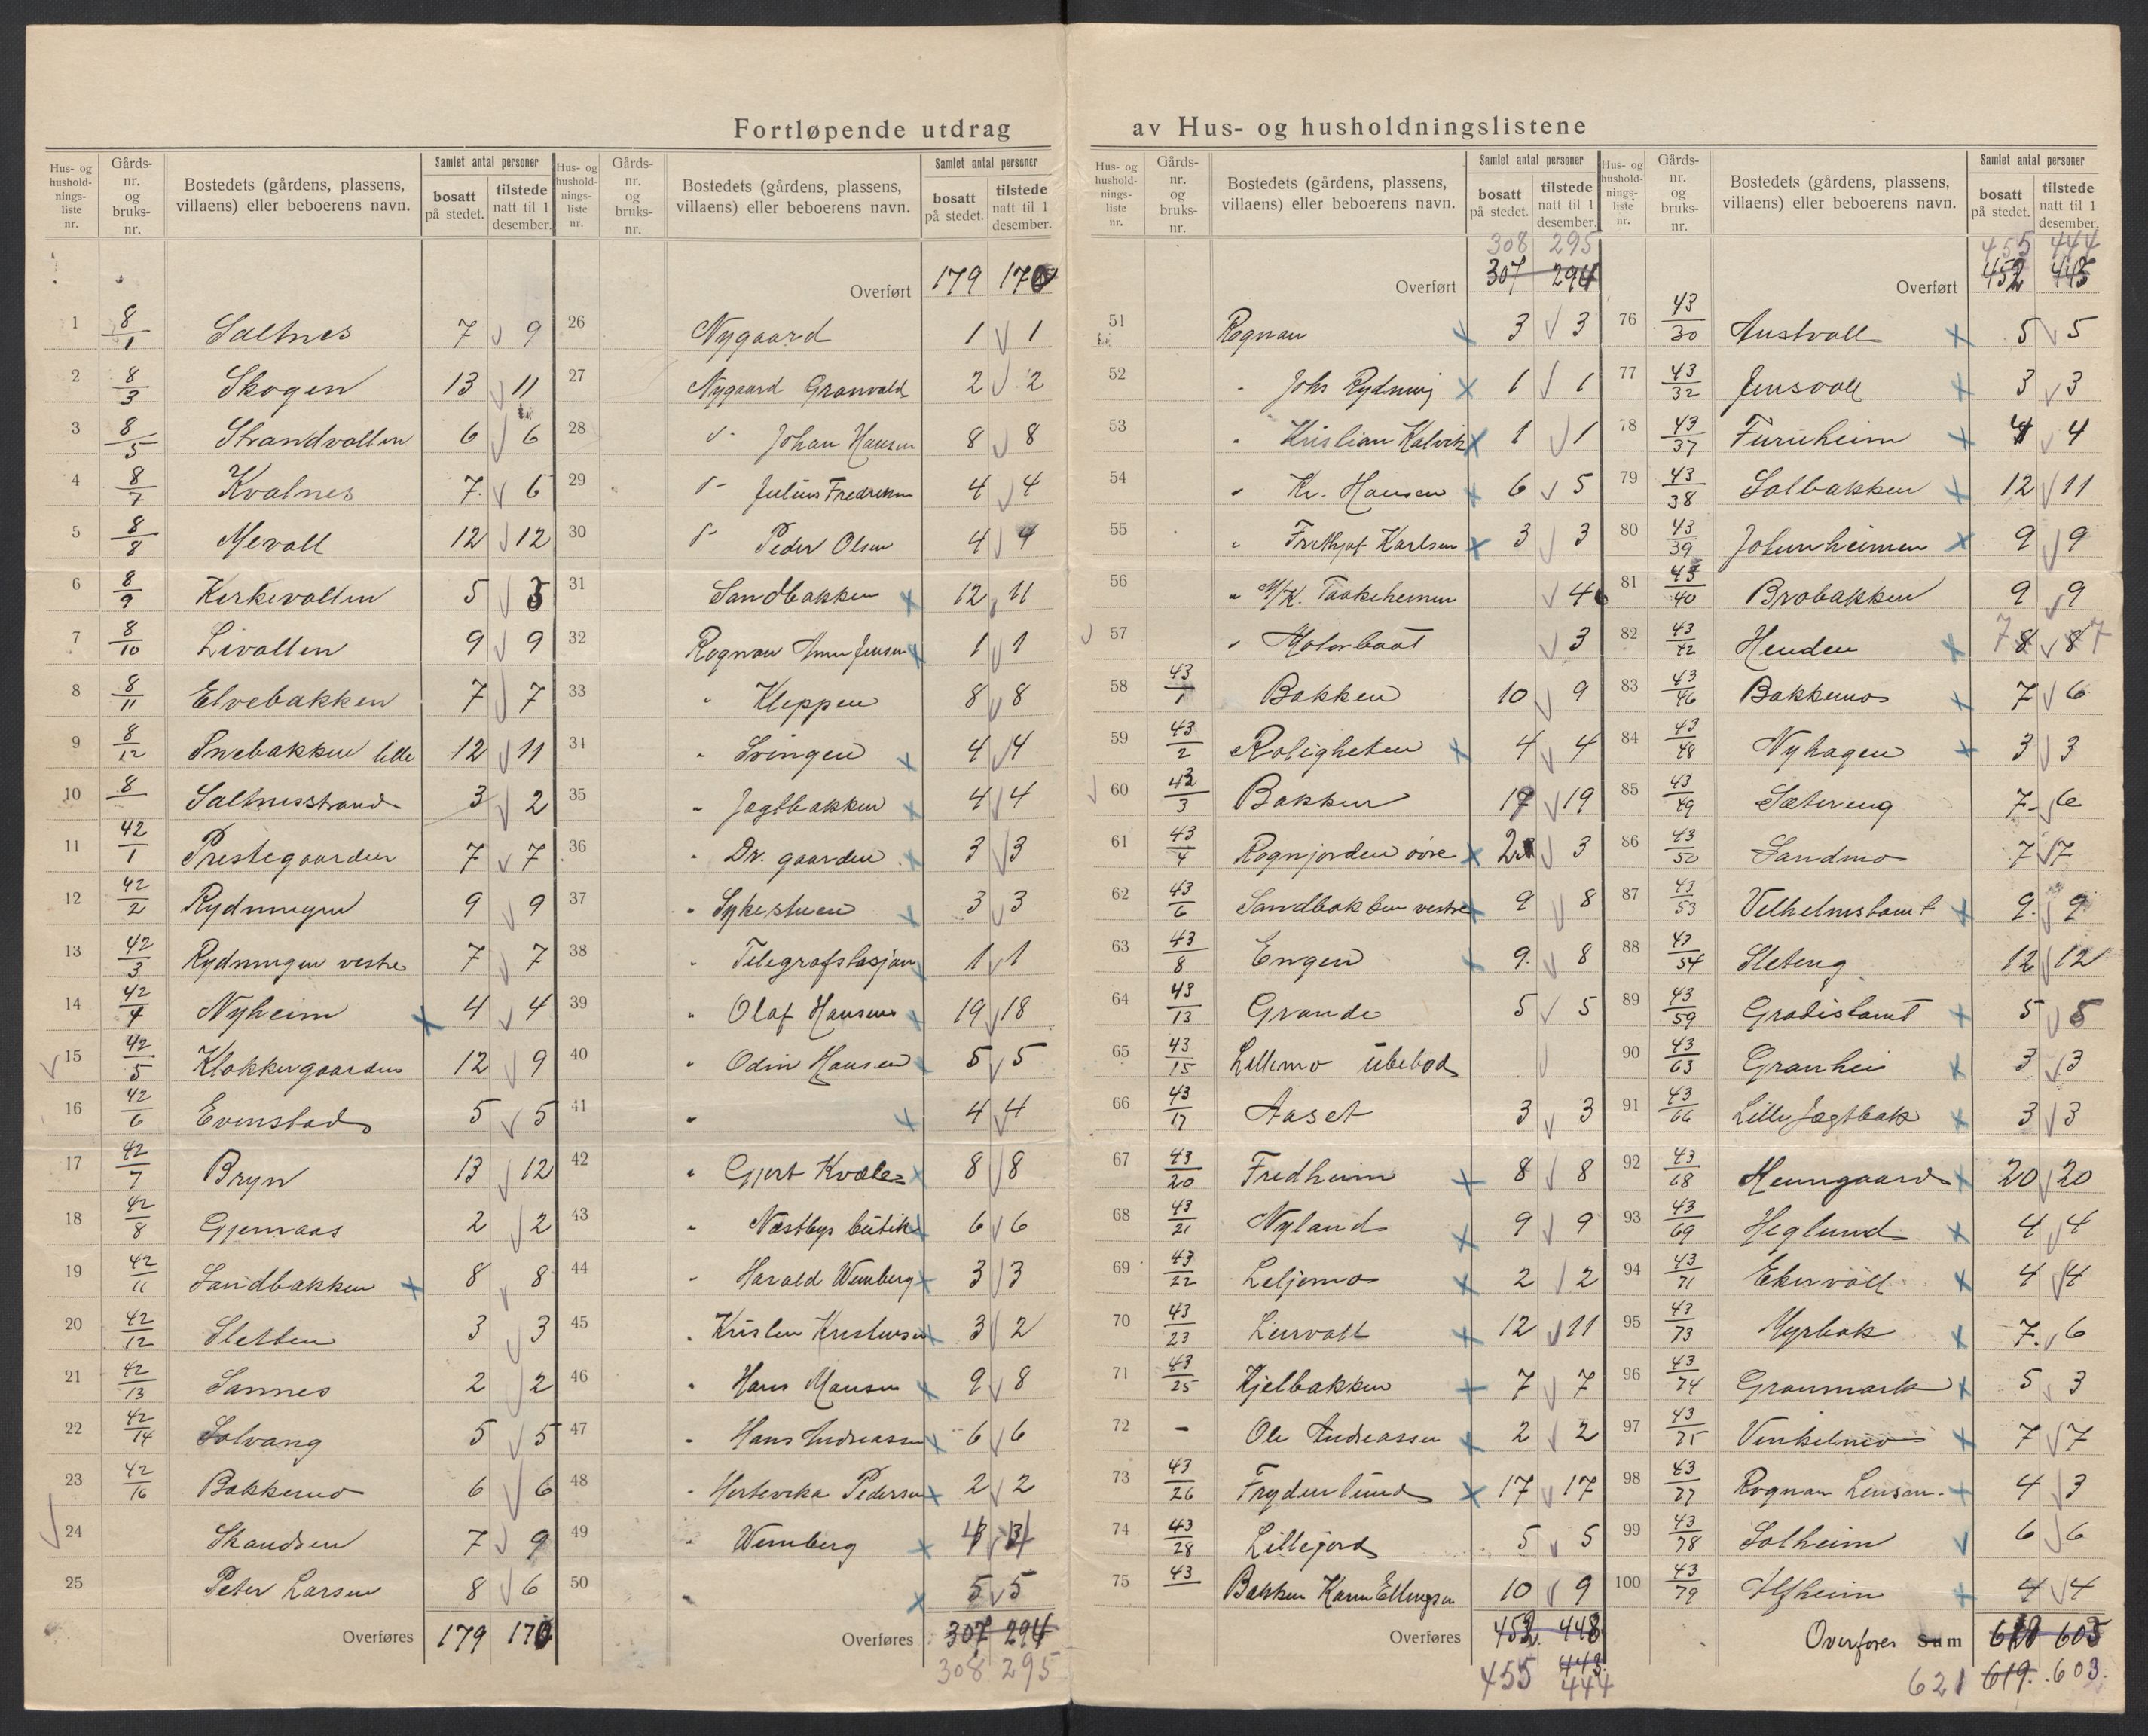 Fortløpende utdrag av Hus- og husholdningslistene
Hus- og hushold- nings- liste nr. Gårds- nr. og bruks- nr. Bostedets (gårdens, plassens, villaens) eller beboerens navn. Samlet antal personer bosatt på stedet. tilstede natt til 1 desember.
1 8/1 Saltnes 7 9
2 8/3 Skogen 13 11
3 8/5 Strandvollen 6 6
4 8/7 Kvalnes 7. 6
5 8/8 Mevoll 12 12
6 8/9 Kirkevollen 5 5
7 8/10 Livollen 9 9
8 8/11 Elvebakken 7 7
9 8/12 Snebakken lille 12 11
10 8/ Saltnesstrand 3 2
11 42/1 Prestegaarden 7 7
12 42/2 Rydningen 9 9
13 42/3 Rydningen vestre 7 7
14 42/4 Nyheim 4 4
15 42/5 Klokkergaarden 12 9
16 42/6 Evenstad 5 5
17 42/7 Bryn 13 12
18 42/8 Gjemaas 2 2
19 42/11 Sandbakken 8 8
20 42/12 Sletten 3 3
21 42/13 Sannes 2 2
22 42/14 Solvang 5 5
23 42/16 Bakkemo 6 6
24 Skandsen 7 9
25 Peter Larsen 8 6
Overføres 179 170
Hus- og hushold- nings- liste nr. Gårds- nr. og bruks- nr. Bostedets (gårdens, plassens, villaens) eller beboerens navn. Samlet antal personer bosatt på stedet. tilstede natt til 1 desember.
Overført 179 170
26 Nygaard 1 1
27 Nygaard Granvold 2 2
28 Johan Hansen 8 8
29 Julius Fredriksen 4 4
30 Peder Olsen 4 4
31 Sandbakken 12 11
32 Rognan Anna Jensen 1 1
33 " Kleppen 8 8
34 " Svingen 4 4
35 " Jagtbakken 4 4
36 " Dr. gaarden 3 3
37 " Sykestuen 3 3
38 " Telegrafstasjon 1 1
39 " Olaf Hansen 19 18
40 " Odin Hansen 5 5
41 " 4 4
42 " Gjert Kvæle 8 8
43 " Næstbys butik 6 6
44 " Harald Wemberg 3 3
45 " Kristen Kristensen 3 2
46 " Hans Hansen 9 8
47 " Hans Andreassen 6 6
48 " Pedersen 2 2
49 " Wemberg
50 " 5 5
Overføres 307 294
308 295
Hus- og hushold- nings- liste nr. Gårds- nr. og bruks- nr. Bostedets (gårdens, plassens, villaens) eller beboerens navn. Samlet antal personer bosatt på stedet. tilstede natt til 1 desember.
308 295
Overført 307 294
51 Rognan 3 3
52 " Johs Rydning 1 1
53 " Kristian Kalvik 1 1
54 " Kr. Hansen 6 5
55 " Fritkjof Karlsen 3 3
56 " M/K. Taakeheimen 4
57 " Motorbaat 3
58 43/1 Bakken 10 9
59 43/2 Roligheten 4 4
60 43/3 Bakken 19 19
61 43/4 Rognjorden øvre 2 3
62 43/6 Sandbakken vestre 9 8
63 43/8 Engen 9. 8
64 43/13 Grande 5 5
65 43/15 Lillemo ubebod
66 43/17 Aaset 3 3
67 43/20 Fredheim 8 8
68 43/21 Nyland 9 9
69 43/22 Liljemo 2 2
70 43/23 Leirvoll 12 11
71 43/25 Kjelbakken 7 7
72 - Ole Andreassen 2 2
73 43/26 Frydenlund 17 17
74 43/28 Lillejord 5 5
75 43/ Bakken Karen Ellingsen 10 9
Overføres 452 448
443.
455 444
Hus- og hushold- nings- liste nr. Gårds- nr. og bruks- nr. Bostedets (gårdens, plassens, villaens) eller beboerens navn. Samlet antal personer bosatt på stedet. tilstede natt til 1 desember.
455 444
Overført 452 443
76 43/30 Austvoll 5 5
77 43/32 Jensvoll 3 3
78 43/37 Furuheim 4 4
79 43/38 Solbakken 12 11
80 43/39 Jotunheimen 9 9
81 43/40 Brobakken 9 9
82 43/42 Henden 7 8 8 7
83 43/46 Bakkemo 7 6
84 43/48 Nyhagen 3 3
85 43/49 Sætereng 7 6
86 43/50 Sandmo 7 7
87 43/53 Vilhelmstomt 9. 9
88 43/54 Sleteng 12 12
89 43/59 Gradistomt 5 5
90 43/63 Granhei 3 3
91 43/66 Lille Jægtbak 3 3
92 43/68 Heimgaard 20 20
93 43/69 Heglund 4 4
94 43/71 Ekervoll 4 4
95 43/73 Myrbak 7. 6
96 43/74 Granmark 5 3
97 43/75 Vinkelmo 7 7
98 43/77 Rognan Lensm. 4 3
99 43/78 Solheim 6 6
100 43/79 Alfheim 4 4
Overføres Sum 618 603
621 619. 603.